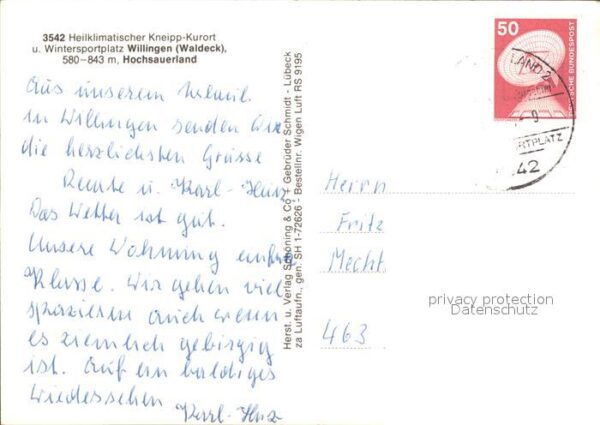 3542 Heilklimatischer Kneipp-Kurort
u. Wintersportplatz Willingen (Waldeck),
580–843 m, Hochsauerland
Aus unserem
in Willingen senden Wir
die herzlichsten Grüsse
Renate u. Karl-Heinz
Das Wetter ist gut.
Unsere Wohnung einfach
Klasse. Wir gehen viel
spazieren auch wenn
es ziemlich gebirgig
ist. Auf ein baldiges
Wiedersehen
Karl-Heinz
Herst. u. Verlag Schöning & Co + Gebrüder Schmidt - Lübeck
za Luftaufn., gen. SH 1-72626 - Bestellnr. Wigen Luft RS 9195
50
DEUTSCHE BUNDESPOST
LAND 2
RTPLATZ
42
Herrn
Fritz
Mecht.
463
privacy protection
Datenschutz